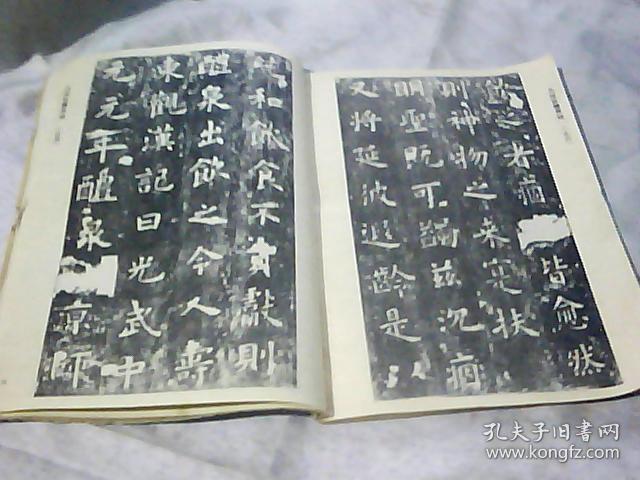 和飲食不貢獻則
醴泉出飲之令人壽
東觀漢記曰光武中
元元年醴泉京師
飲之者痼皆愈然
則神物之来寔扶
明聖既可蠲茲沉痼
又將延彼遐齡是以
孔夫子旧書网
www.kongfz.com